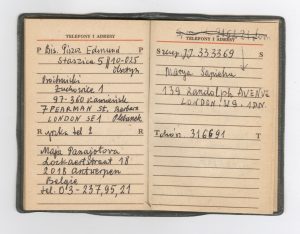 TELEFONY I ADRESY
P Bis. Piszcz Edmund P
Staszica 5 10-025
Olsztyn
Żuchowice 1
97-360 Kamieńsk
7 PEARMAN St. Barbara
LONDON SE1
R R
Maja Panajotova
Lockaertstraat 18
2018 Antwerpen
Belgie
tel. 03-237,95,21
TELEFONY I ADRESY
S S
Szczep 77.333369
Marya Sapieha
139 RANDOLPH AVENUE
LONDON W9-1DN.
T 316691 T